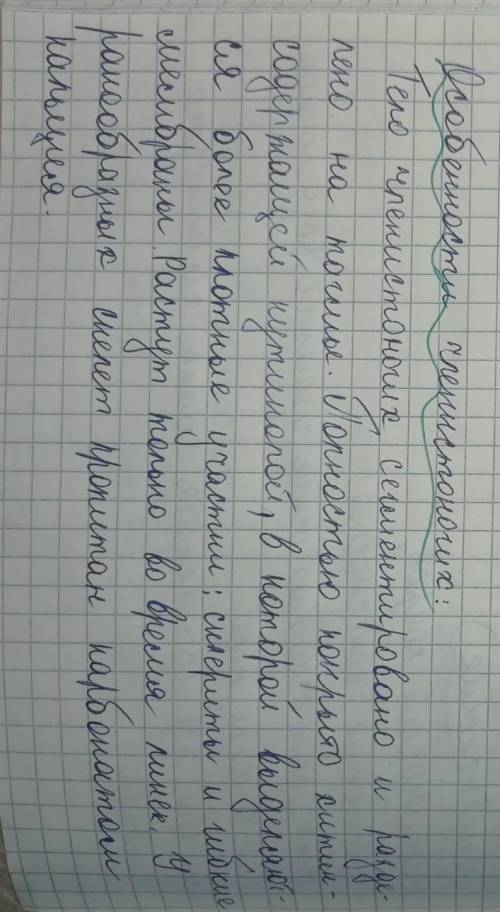 Особенности членистоногих:
Тело членистоногих сегментировано и разде-
лено на тагмы. Полностью покрыто хитин-
содержащей кутикулой, в которой выделяют-
ся более плотные участки; склериты и гибкие
мембраны. Растут только во время линек. У
ракообразных скелет пропитан карбонатом
кальция.